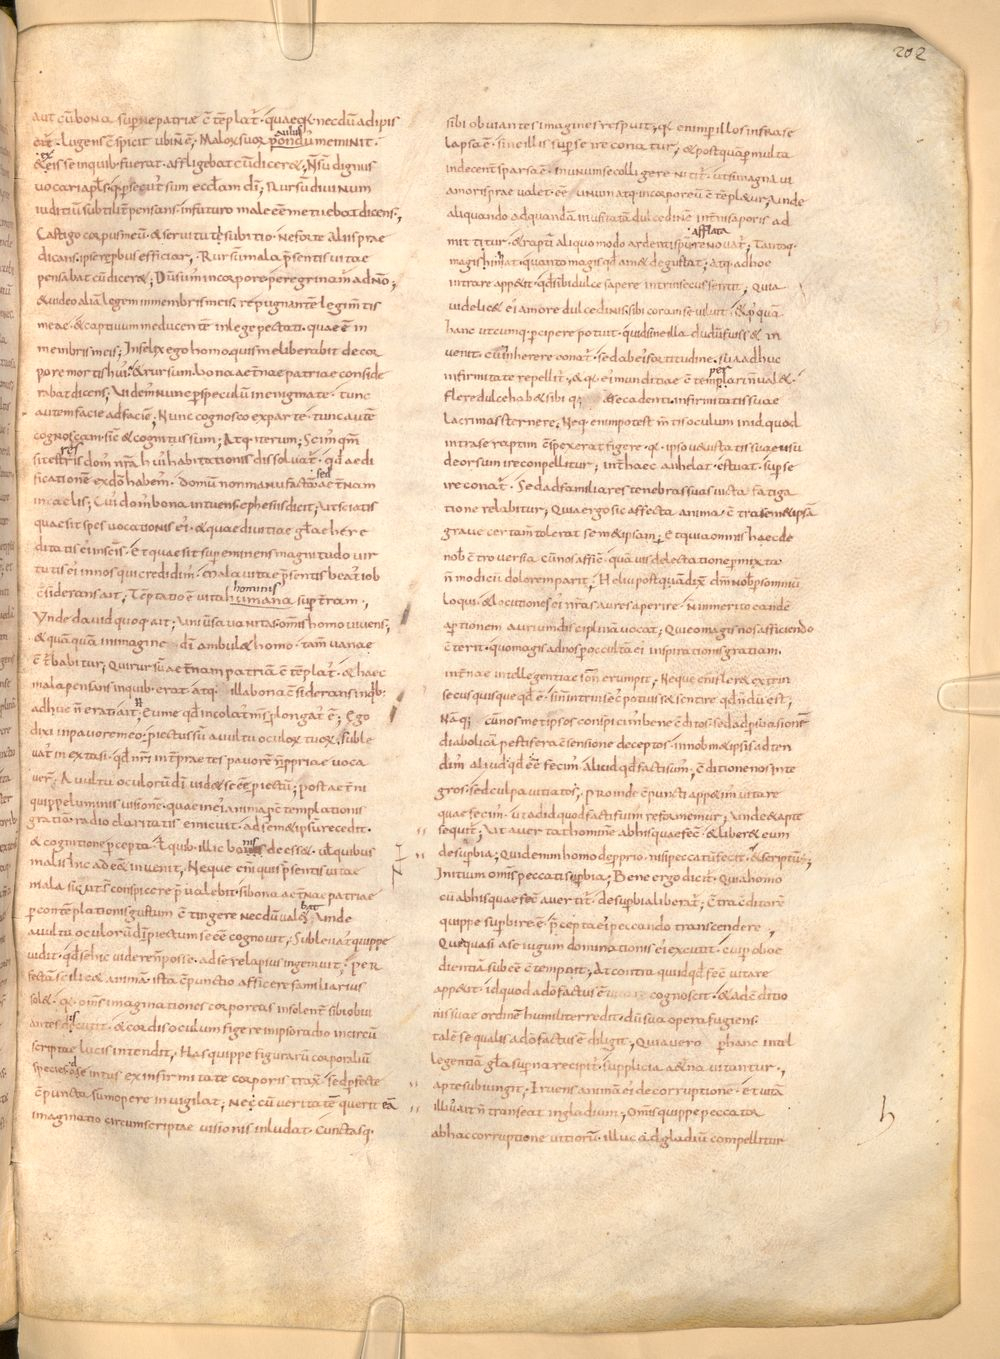 202
aut cū bona supernę patriae c̄templat̄· quaeq; necdū adipis
Lugens c̄spicit ubi n̄ ē; Malorū suorū pondus meminit
inquib· fuerat· affligebat cū dicere&; N̄ sū dignus
vocari apl̄s· qā persecut̄ sum eccl̄am dī; Rursū divinum
iuditiū subtilit̄ pensans· in futuro male ēē metuebat dicens;
Castigo corpus meū· & servituti subitio· Ne forte aliis prae
dicans· ipse repbus efficiar; Rursū mala p̄sentis vitae
pensabat cū dicere&; Dū sum̄ in corpore peregrinam̄ ad nō;
& video aliā legem in membris meis· repugnantē legi m̄tis
meae· & captivum me ducentē in lege peccati· quae ē in
membris meis; Infelix ego homo quis me liberabit de cor
pore mortis hui'· & rursum bona aet̄nae patriae conside
rabat dicens; Videm̄ nunc p speculū in enigmate· tunc
autem facie ad faciē; Nunc cognosco ex parte· tunc autē
cognoscam sic & cognitus sum; Atq· iterum; Scim̄ qm̄
si terrestris dom̄ nr̄a hui' habitationis dissolvat̄· qd̄ aedi
ficationē ex dō habem̄· domū non manu factā sed aet̄nam
in caelis; Cui' dom̄ bona intuens· ephesiis dicit; Ut sciatis
quae sit spes vocationis ei'· & quae divitiae gl̄ae here
ditatis ei' in sc̄is· Et quae sit supereminens magnitudo vir
tutis ei' in nos qui credidim̄· Mala vitae p̄sentis beat' iob
c̄siderans ait; Teptatio ē vita hominis humana sup t̄ram·,
Unde david quoq· ait; Universa vanitas· om̄is homo vivens;
& quā quā in imagine dī ambul& homo· tam̄ vanae
c̄t̄babitur; Qui rursū aet̄nam patriā c̄templat̄· & haec
mala pensans inquib· erat· atq· illa bona c̄siderans inqb·
adhuc n̄ erat; ait; Eu me qd̄ incolat' m̄s plongat' ē; Ego
dixi in pavore meo· piectus sū a vultu oculorū tuorū· suble
vat' in extasi· qd̄ nr̄i int̄praetes pavorē n̄ pprie voca
ver̄· A vultu oculorū dī vid& se ēē piectū; post aet̄ni
quippe luminis visionē· quae in ei' anima p c̄templationis
gratiā radio claritatis emicuit· ad semetipsū recedit·
& cognitione pcepta· t̄ quib· illic bonis deess&· vl̄ quibus
malis hic ade& invenit; Neque eni quis p̄sentis vitae
mala sic ut s̄ conspicere p̄valebit· si bona aet̄nae patriae
p contēplationis gustum c̄tingere necdū val&; Unde
a vultu oculorū dī piectum se ēē cognovit; Sublevat' quippe
vidit· qd̄ se hic videre n̄ posse· ad se relapsus ingemuit; per
fectā scilic& animā ista c̄punctio afficere familiarius
sol&· q; om̄s imaginationes corporeas insolent̄ sibi obvi
antes discutit· & cordis oculum figere in ipso radio incircū
scriptae lucis intendit; Has quippe figurarū corporaliū
species ad se intus ex infirmitate corporis trax̄· sed pfecte
c̄puncta sumopere invigilat; Nec cū veritatē querit eā
imaginatio circumscriptae visionis inludat· Cunctasq·
sibi obviantes imagines respuit; q; enim p illos infra se
lapsa ē· sine illis sup se ire conatur; & postquā p multa
indecent̄ sparsa ē· in unum se colligere nitit̄· ut si magna vi
amoris prae valet· ēē unum atq· incorporeū c̄templ&ur; Unde
aliquando ad quandā inusitatā dulcedinē int̄ni saporis ad
mittitur· & raptā aliquo modo ardenti spū afflata renovat̄; Tantoq·
magis inhiat· quanto magis qd̄ am& degustat; Atq· adhoc
intrare app&it· qd̄ sibi dulce sapere intrinsecus sentit; Quia
videlic& ei' amore dulcedinis· sibi coram se viluit· & p quā
hanc utcumq· pcipere potuit· quid sine illa dudū fuiss& in
venit· cui inherere conat̄· sed ab ei' fortitudine· sua adhuc
infirmitate repellit̄· & q; ei' munditiae c̄templari n̄ val&·
flere dulce hab& sibi q; ad se cadenti infirmitatis suae
lacrimas sternere; Neq· enim potest m̄tis oculum in id quod
intra se raptim c̄spexerat figere· q; ipso vetustatis suae usu
deorsum ire conpellitur; int̄ haec anhelat· estuat· sup se
ire conat̄· Sed ad familiares tenebras suas victa fatiga
tione relabitur; Quia ergo sic affecta anima· c̄tra semetipsā
grave certam̄ tolerat se metipsam; Et quia omnis haec de
nob' c̄troversia· cū nos afficit· quāvis delectatione pmixta
n̄ modicū dolorem parit; Heliu postquā dix̄ dn̄m nob' p somniū
loqui· & locutiones ei' nr̄as aures aperire· n̄ inmerito eandē
aptionem aurium disciplinā vocat; Quia eo magis nos afficiendo
c̄terit· quo magis ad nos p occultā ei' inspirationis gratiam·
int̄nae intellegentiae son̄ erumpit; Neque eni flere extrin
secus quisque qd̄ ē· sin intrinsec' potuiss& sentire qd̄ n̄dū est;
Nā q; cū nosmetipsos conspicim' bene c̄ditos· sed ad psuasionē
diabolicā pestifera c̄sensione deceptos· in nobismetipsis adten
dim̄ aliud qd̄ ēē fecim̄· aliud qd̄ facti sum̄; C̄ditione nos inte
gros· sed culpa vitiatos; Proinde c̄puncti app&im̄ vitare
quae fecim̄· ut ad id quod facti sum' reformemur; Unde & apte
sequit̄; Ut avertat hominē ab his quae fec̄· & liber& eum
de supbia; Quid enim homo de pprio· nisi peccatū fecit· & scriptū ē;
Initium om̄is peccati supbia; Bene ergo dicit̄· Quia homo
cū ab his quae fec̄ avertit̄· de supbia liberat̄; C̄tra c̄ditorē
quippe supbire ē· p̄cepta ei' peccando transcendere;
Quae quasi a se iugum dominationis ei' excutit· cui p oboe
dientiā subēē c̄tempnit; At contra quid qd̄ fec̄ vitare
app&it· id quod a dō factus ē cognoscit· & ad c̄ditio
nis suae ordinē humilit̄ redit· dū sua opera fugiens·
talē se qualis a dō factus ē diligit; Quia vero p hanc intel
legentiā gl̄a supna recipit̄· supplicia aet̄na vitantur;
apte subiungit· Eruens animā ei' de corruptione· & vitā
illi' ut n̄ transeat in gladium; Om̄is quippe peccator
ab hac corruptione vitiorū· illuc ad gladiū compellitur